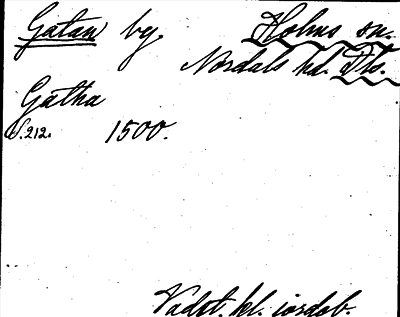 Gatan by. Holms sn.
Nordals hd. Dls.
Gatha
S. 212. 1500.
Vadst. kl. jordeb.